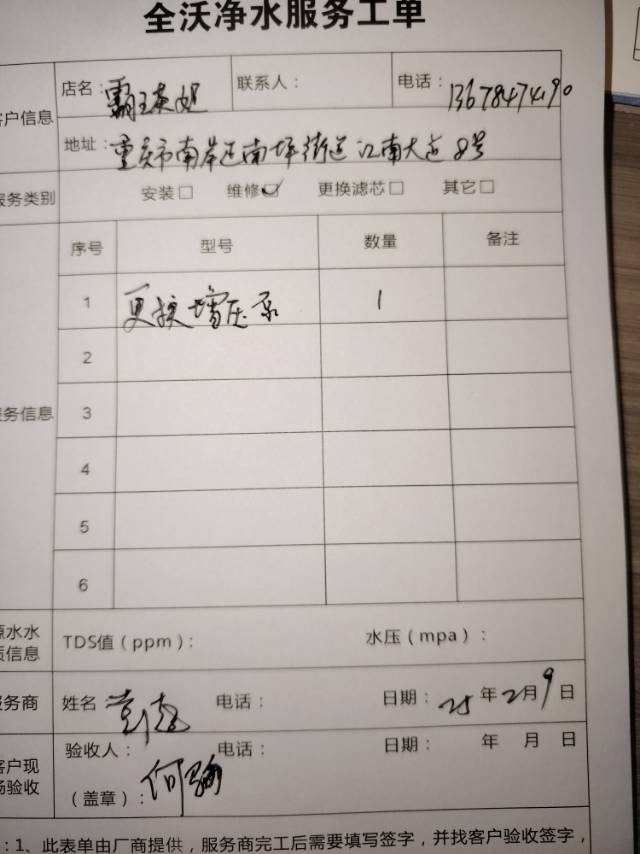 全沃净水服务工单
客户信息
店名：霸王茶姬 联系人： 电话：13678474190
地址：重庆市南岸区南坪街道江南大道8号
服务类别 安装□ 维修☑ 更换滤芯□ 其它□
序号 型号 数量 备注
1 更换增压泵 1
2
服务信息 3
4
5
6
原水水质信息 TDS值（ppm）： 水压（mpa）：
服务商 姓名 电话： 日期：25年2月9日
客户现场验收 验收人： 电话： 日期： 年 月 日
（盖章）：何
：1、此表单由厂商提供，服务商完工后需要填写签字，并找客户验收签字，